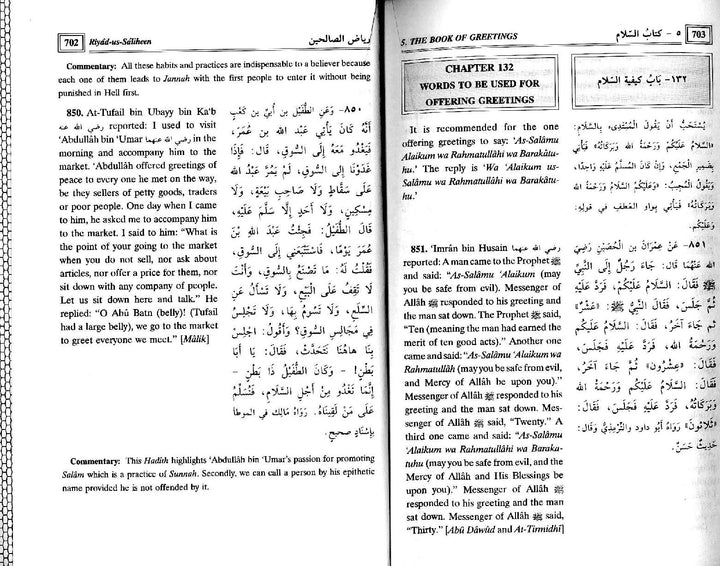 702 Riyâd-us-Sâliheen رياض الصالحين
Commentary: All these habits and practices are indispensable to a believer because
each one of them leads to Jannah with the first people to enter it without being
punished in Hell first.
850. At-Tufail bin Ubayy bin Ka'b
رضي الله عنه reported: I used to visit
'Abdullâh bin 'Umar رضي الله عنهما in the
morning and accompany him to the
market. 'Abdullâh offered greetings of
peace to every one he met on the way,
be they sellers of petty goods, traders
or poor people. One day when I came
to him, he asked me to accompany him
to the market. I said to him: "What is
the point of your going to the market
when you do not sell, nor ask about
articles, nor offer a price for them, nor
sit down with any company of people.
Let us sit down here and talk." He
replied: "O Abû Batn (belly)! (Tufail
had a large belly), we go to the market
to greet everyone we meet." [Mâlik]
٨٥٠- وَعَنِ الطُّفَيْلِ بْنِ أُبَيِّ بْنِ كَعْبٍ
أَنَّهُ كَانَ يَأْتِي عَبْدَ اللهِ بْنَ عُمَرَ،
فَيَغْدُو مَعَهُ إِلَى السُّوقِ، قَالَ: فَإِذَا
غَدَوْنَا إِلَى السُّوقِ، لَمْ يَمُرَّ عَبْدُ اللهِ
عَلَى سَقَّاطٍ وَلَا صَاحِبِ بَيْعَةٍ، وَلَا
مِسْكِينٍ، وَلَا أَحَدٍ إِلَّا سَلَّمَ عَلَيْهِ،
قَالَ الطُّفَيْلُ: فَجِئْتُ عَبْدَ اللهِ بْنَ
عُمَرَ يَوْمًا، فَاسْتَتْبَعَنِي إِلَى السُّوقِ،
فَقُلْتُ لَهُ: مَا تَصْنَعُ بِالسُّوقِ، وَأَنْتَ
لَا تَقِفُ عَلَى الْبَيْعِ، وَلَا تَسْأَلُ عَنِ
السِّلَعِ، وَلَا تَسُومُ بِهَا، وَلَا تَجْلِسُ
فِي مَجَالِسِ السُّوقِ؟ وَأَقُولُ: اجْلِسْ
بِنَا هَاهُنَا نَتَحَدَّثْ، فَقَالَ: يَا أَبَا
بَطْنٍ! - وَكَانَ الطُّفَيْلُ ذَا بَطْنٍ -
إِنَّمَا نَغْدُو مِنْ أَجْلِ السَّلَامِ، فَنُسَلِّمُ
عَلَى مَنْ لَقِينَاهُ. رَوَاهُ مَالِك فِي الموطأ
بِإِسْنَادٍ صَحِيحٍ.
Commentary: This Hadith highlights 'Abdullâh bin 'Umar's passion for promoting
Salâm which is a practice of Sunnah. Secondly, we can call a person by his epithetic
name provided he is not offended by it.
5. THE BOOK OF GREETINGS ٥ - كتابُ السّلام 703
CHAPTER 132
WORDS TO BE USED FOR
OFFERING GREETINGS
١٣٢- بَابُ كيفية السّلام
It is recommended for the one
offering greetings to say: 'As-Salâmu
Alaikum wa Rahmatullâhi wa Barakâtu-
hu.' The reply is 'Wa 'Alaikum us-
Salâmu wa Rahmatullâhi wa Barakâtu-
hu.'
يُسْتَحَبُّ أَنْ يَقُولَ الْمُبْتَدِىءُ بِالسَّلَامِ:
«السَّلَامُ عَلَيْكُمْ وَرَحْمَةُ اللهِ وَبَرَكَاتُهُ»
بِضَمِيرِ الْجَمْعِ، وَإِنْ كَانَ الْمُسَلَّمُ عَلَيْهِ وَاحِدًا،
وَيَقُولُ الْمُجِيبُ: «وَعَلَيْكُمُ السَّلَامُ وَرَحْمَةُ اللهِ
وَبَرَكَاتُهُ» فَيَأْتِي بِوَاوِ الْعَطْفِ فِي قَوْلِهِ:
851. 'Imrân bin Husain رضي الله عنهما
reported: A man came to the Prophet ﷺ
and said: "As-Salâmu 'Alaikum (may
you be safe from evil). Messenger of
Allâh ﷺ responded to his greeting and
the man sat down. The Prophet ﷺ said,
"Ten (meaning the man had earned the
merit of ten good acts)." Another one
came and said: "As-Salâmu 'Alaikum wa
Rahmatullâh (may you be safe from evil,
and Mercy of Allâh be upon you)."
Messenger of Allâh ﷺ responded to his
greeting and the man sat down. Mes-
senger of Allâh ﷺ said, "Twenty." A
third one came and said: "As-Salâmu
'Alaikum wa Rahmatullâhi wa Baraka-
tuhu (may you be safe from evil, and the
Mercy of Allâh and His Blessings be
upon you)." Messenger of Allâh ﷺ
responded to his greeting and the man
sat down. Messenger of Allâh ﷺ said,
"Thirty." [Abû Dâwûd and At-Tirmidhî]
٨٥١- عَنْ عِمْرَانَ بْنِ الْحُصَيْنِ رَضِيَ
اللهُ عَنْهُمَا قَالَ: جَاءَ رَجُلٌ إِلَى النَّبِيِّ
ﷺ فَقَالَ: السَّلَامُ عَلَيْكُمْ، فَرَدَّ عَلَيْهِ
ثُمَّ جَلَسَ، فَقَالَ النَّبِيُّ ﷺ: «عَشْرٌ»
ثُمَّ جَاءَ آخَرُ، فَقَالَ: السَّلَامُ عَلَيْكُمْ
وَرَحْمَةُ اللهِ، فَرَدَّ عَلَيْهِ فَجَلَسَ،
فَقَالَ: «عِشْرُونَ» ثُمَّ جَاءَ آخَرُ،
فَقَالَ: السَّلَامُ عَلَيْكُمْ وَرَحْمَةُ اللهِ
وَبَرَكَاتُهُ، فَرَدَّ عَلَيْهِ فَجَلَسَ، فَقَالَ:
«ثَلَاثُونَ» رَوَاهُ أَبُو دَاود وَالتِّرْمِذِيُّ وَقَالَ:
حَدِيثٌ حَسَنٌ.